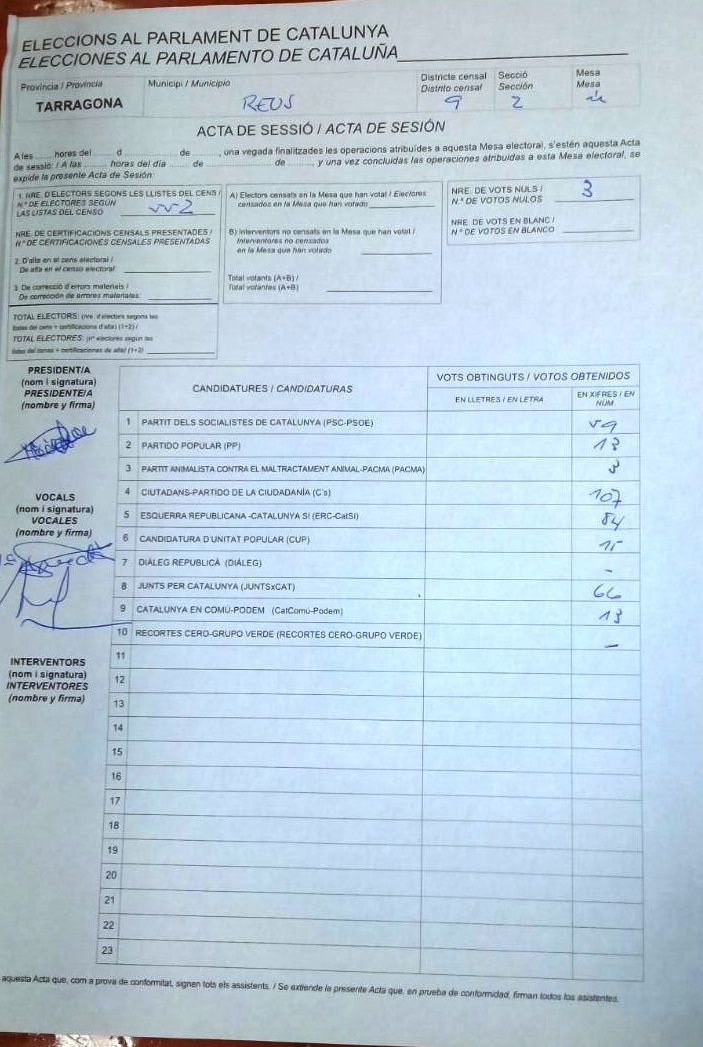 ELECCIONS AL PARLAMENT DE CATALUNYA
ELECCIONES AL PARLAMENTO DE CATALUÑA
Província / Provincia
TARRAGONA
Municipi / Municipio
REUS
Districte censal
Distrito censal
9
Secció
Sección
2
Mesa
Mesa
ACTA DE SESSIÓ / ACTA DE SESIÓN
A les ...... hores del ...... d ............ de ......, una vegada finalitzades les operacions atribuïdes a aquesta Mesa electoral, s'estén aquesta Acta
de sessió: / A las ...... horas del día ...... de ............ de ......, y una vez concluidas las operaciones atribuidas a esta Mesa electoral, se
expide la presente Acta de Sesión:
1. NRE. D'ELECTORS SEGONS LES LLISTES DEL CENS /
N.º DE ELECTORES SEGÚN
LAS LISTAS DEL CENSO
NRE. DE CERTIFICACIONS CENSALS PRESENTADES /
N.º DE CERTIFICACIONES CENSALES PRESENTADAS
2. D'alta en el cens electoral /
De alta en el censo electoral
3. De correcció d'errors materials /
De corrección de errores materiales:
TOTAL ELECTORS: (nre. d'electors segons les
llistes del cens + certificacions d'alta) (1+2) /
TOTAL ELECTORES: (nº electores según las
listas del censo + certificaciones de alta) (1+2)
A) Electors censats en la Mesa que han votat / Electores
censados en la Mesa que han votado
B) Interventors no censats en la Mesa que han votat /
Interventores no censados
en la Mesa que han votado
Total votants (A+B) /
Total votantes (A+B)
NRE. DE VOTS NULS /
N.º DE VOTOS NULOS
3
NRE. DE VOTS EN BLANC /
N.º DE VOTOS EN BLANCO
PRESIDENT/A
(nom i signatura)
PRESIDENTE/A
(nombre y firma)
VOCALS
(nom i signatura)
VOCALES
(nombre y firma)
INTERVENTORS
(nom i signatura)
INTERVENTORES
(nombre y firma)
CANDIDATURES / CANDIDATURAS
VOTS OBTINGUTS / VOTOS OBTENIDOS
EN LLETRES / EN LETRA
EN XIFRES / EN
NÚM
1 PARTIT DELS SOCIALISTES DE CATALUNYA (PSC-PSOE) 59
2 PARTIDO POPULAR (PP) 13
3 PARTIT ANIMALISTA CONTRA EL MALTRACTAMENT ANIMAL-PACMA (PACMA) 3
4 CIUTADANS-PARTIDO DE LA CIUDADANÍA (C's) 107
5 ESQUERRA REPUBLICANA -CATALUNYA SÍ (ERC-CatSí) 84
6 CANDIDATURA D'UNITAT POPULAR (CUP) 15
7 DIÀLEG REPUBLICÀ (DIÀLEG) -
8 JUNTS PER CATALUNYA (JUNTSxCAT) 66
9 CATALUNYA EN COMÚ-PODEM (CatComú-Podem) 13
10 RECORTES CERO-GRUPO VERDE (RECORTES CERO-GRUPO VERDE) -
11
12
13
14
15
16
17
18
19
20
21
22
23
aquesta Acta que, com a prova de conformitat, signen tots els assistents. / Se extiende la presente Acta que, en prueba de conformidad, firman todos los asistentes.